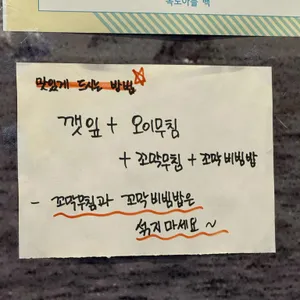 맛있게 드시는 방법
깻잎 + 오이무침
+ 꼬막무침 + 꼬막비빔밥
- 꼬막무침과 꼬막비빔밥은
섞지마세요~